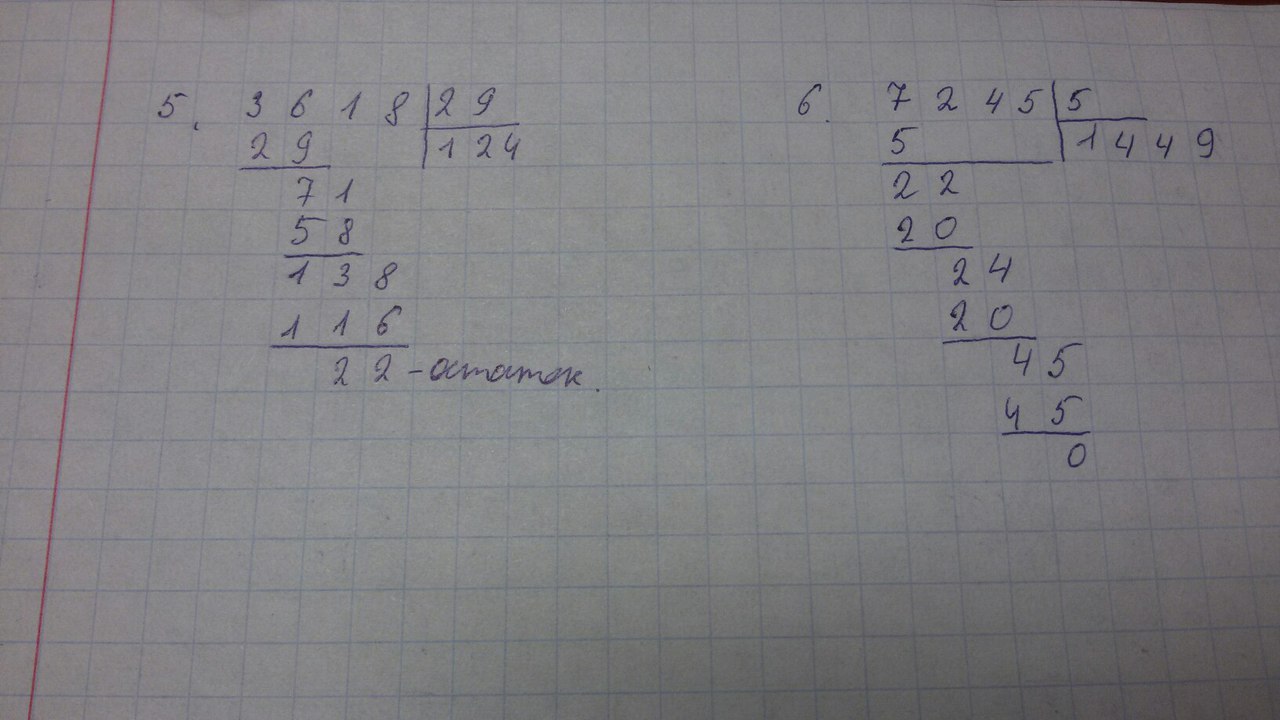 5. 3618 29
29 124
71
58
138
116
22 - остаток.
6. 7245 5
5 1449
22
20
24
20
45
45
0